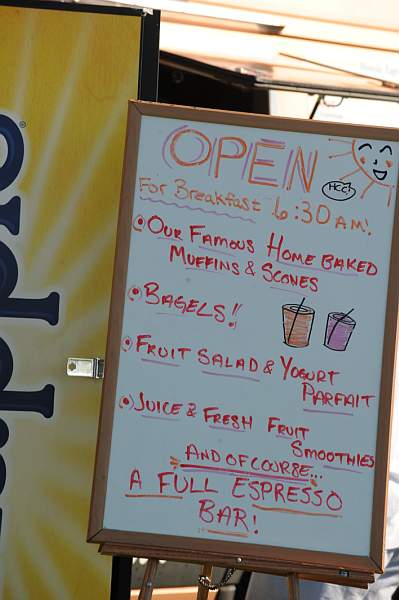 OPEN
HCC!
FOR BREAKFAST 6:30 AM!
OUR FAMOUS HOME BAKED
MUFFINS & SCONES
BAGELS!!
FRUIT SALAD & YOGURT
PARFAIT
JUICE & FRESH FRUIT
SMOOTHIES
AND OF COURSE...
A FULL ESPRESSO
BAR!